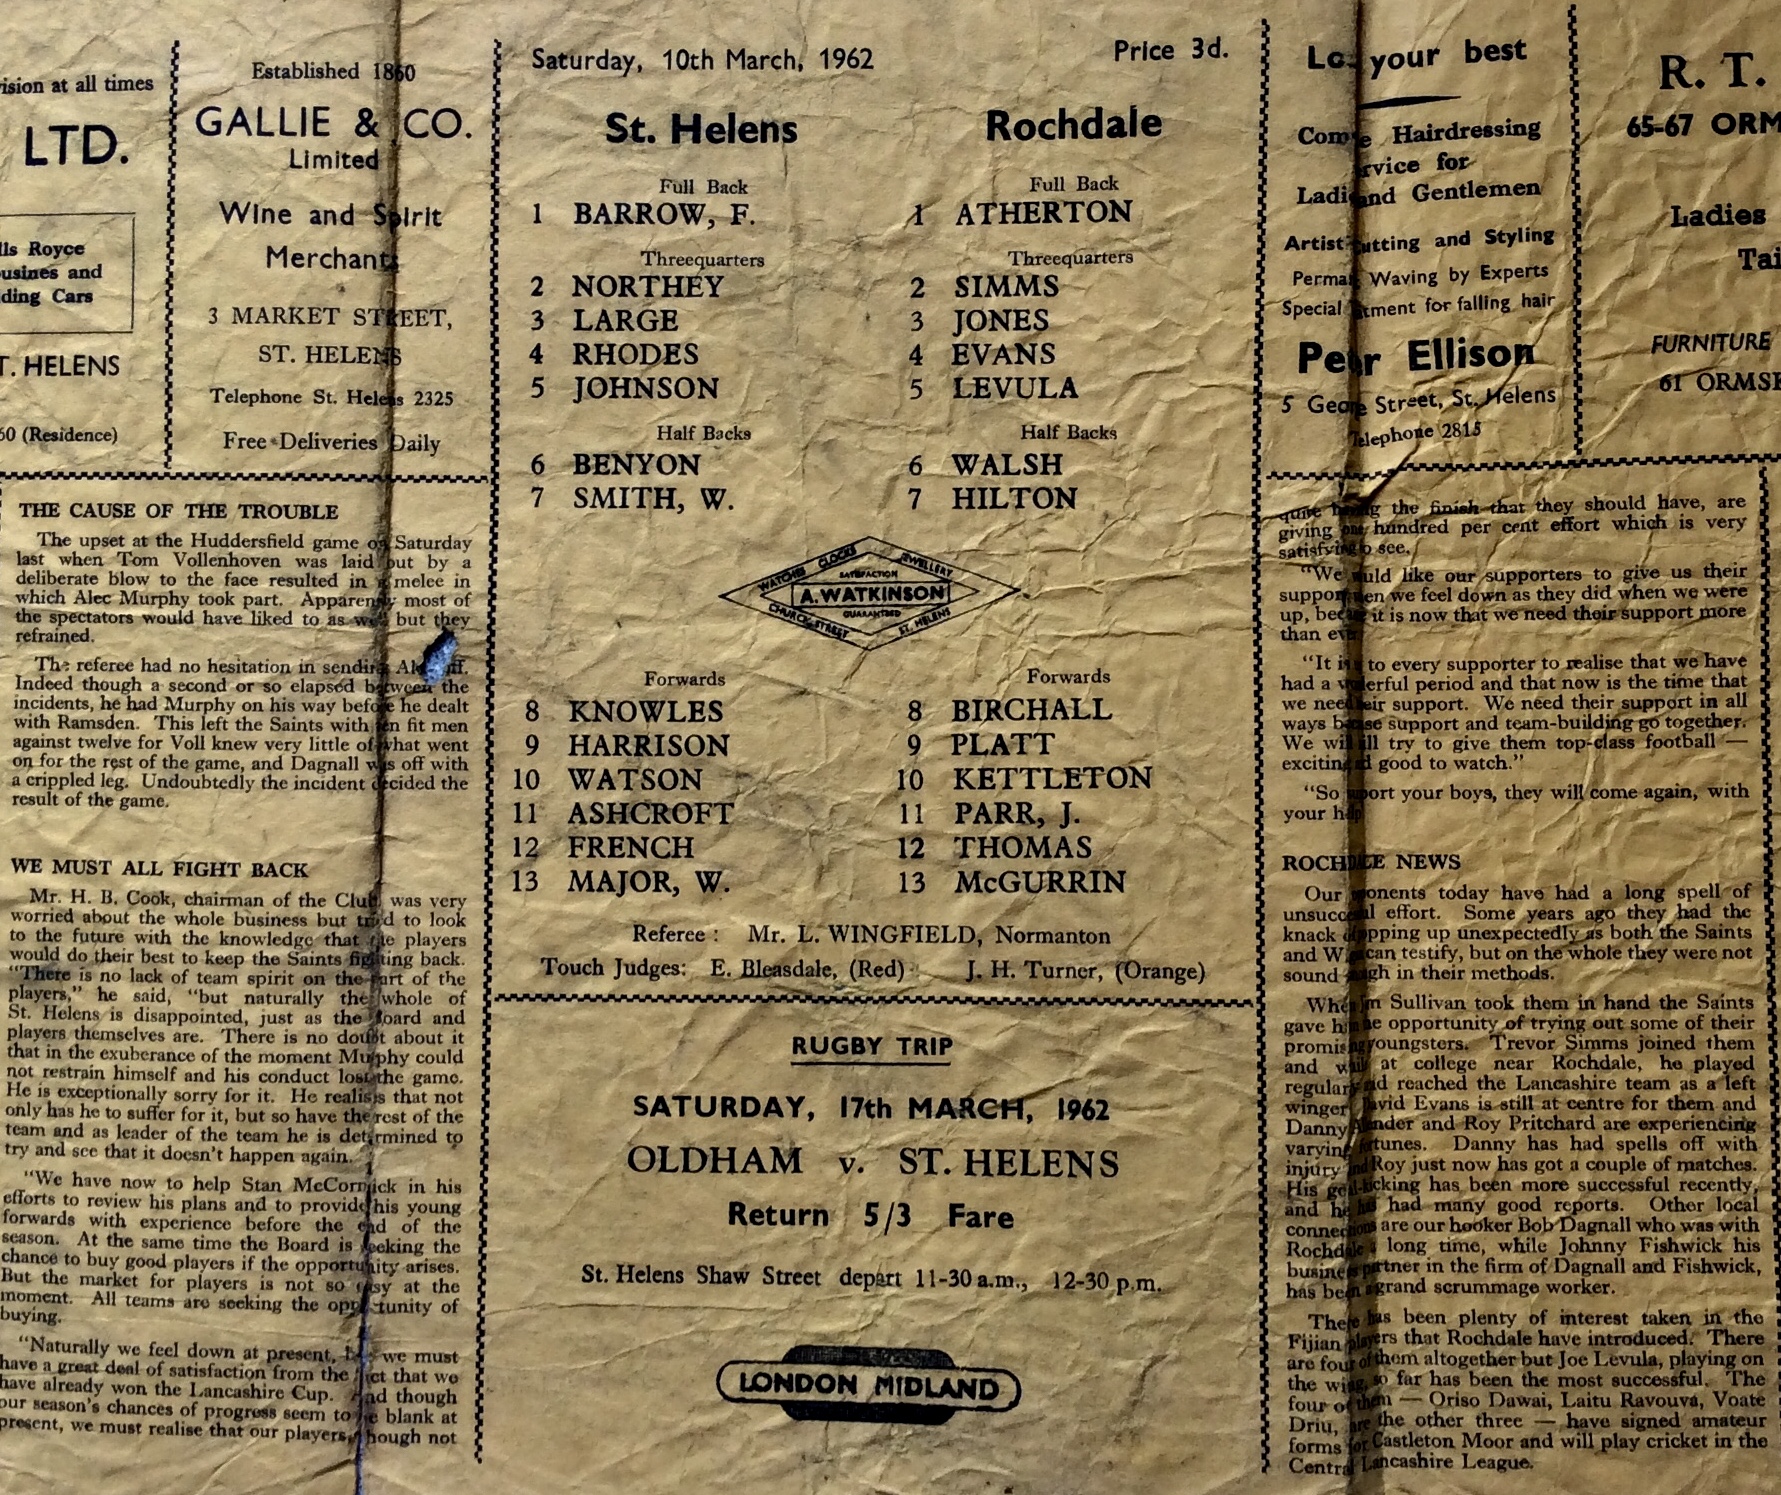 ision at all times
LTD.
lls Royce
ousines and
ding Cars
T. HELENS
60 (Residence)
Established 1860
GALLIE & CO.
Limited
Wine and Spirit
Merchants
3 MARKET STREET,
ST. HELENS
Telephone St. Helens 2325
Free Deliveries Daily
THE CAUSE OF THE TROUBLE
The upset at the Huddersfield game on Saturday
last when Tom Vollenhoven was laid out by a
deliberate blow to the face resulted in a melee in
which Alec Murphy took part. Apparently most of
the spectators would have liked to as well but they
refrained.
The referee had no hesitation in sending Alec off.
Indeed though a second or so elapsed between the
incidents, he had Murphy on his way before he dealt
with Ramsden. This left the Saints with ten fit men
against twelve for Voll knew very little of what went
on for the rest of the game, and Dagnall was off with
a crippled leg. Undoubtedly the incident decided the
result of the game.
WE MUST ALL FIGHT BACK
Mr. H. B. Cook, chairman of the Club, was very
worried about the whole business but tried to look
to the future with the knowledge that the players
would do their best to keep the Saints fighting back.
"There is no lack of team spirit on the part of the
players," he said, "but naturally the whole of
St. Helens is disappointed, just as the Board and
players themselves are. There is no doubt about it
that in the exuberance of the moment Murphy could
not restrain himself and his conduct lost the game.
He is exceptionally sorry for it. He realises that not
only has he to suffer for it, but so have the rest of the
team and as leader of the team he is determined to
try and see that it doesn't happen again.
"We have now to help Stan McCormick in his
efforts to review his plans and to provide his young
forwards with experience before the end of the
season. At the same time the Board is seeking the
chance to buy good players if the opportunity arises.
But the market for players is not so easy at the
moment. All teams are seeking the opportunity of
buying.
"Naturally we feel down at present, but we must
have a great deal of satisfaction from the fact that we
have already won the Lancashire Cup. And though
our season's chances of progress seem to be blank at
present, we must realise that our players, though not
Saturday, 10th March, 1962 Price 3d.
St. Helens Rochdale
Full Back Full Back
1 BARROW, F. 1 ATHERTON
Threequarters Threequarters
2 NORTHEY 2 SIMMS
3 LARGE 3 JONES
4 RHODES 4 EVANS
5 JOHNSON 5 LEVULA
Half Backs Half Backs
6 BENYON 6 WALSH
7 SMITH, W. 7 HILTON
WATCHES CLOCKS JEWELLERY
SATISFACTION
A. WATKINSON
GUARANTEED
CHURCH STREET ST. HELENS
Forwards Forwards
8 KNOWLES 8 BIRCHALL
9 HARRISON 9 PLATT
10 WATSON 10 KETTLETON
11 ASHCROFT 11 PARR, J.
12 FRENCH 12 THOMAS
13 MAJOR, W. 13 McGURRIN
Referee : Mr. L. WINGFIELD, Normanton
Touch Judges: E. Bleasdale, (Red) J. H. Turner, (Orange)
RUGBY TRIP
SATURDAY, 17th MARCH, 1962
OLDHAM v. ST. HELENS
Return 5/3 Fare
St. Helens Shaw Street depart 11-30 a.m., 12-30 p.m.
LONDON MIDLAND
your best
Hairdressing
for
Gentlemen
and Styling
Waving by Experts
Special for falling hair
Ellison
5 Street, St. Helens
Telephone 2815
R. T.
65-67 ORM
Ladies
Tai
FURNITURE
61 ORMSK
quite the finish that they should have, are
giving hundred per cent effort which is very
satisfying to see.
"We would like our supporters to give us their
support when we feel down as they did when we were
up, it is now that we need their support more
than ever
"It is to every supporter to realise that we have
had a wonderful period and that now is the time that
we need their support. We need their support in all
ways because support and team-building go together.
We will try to give them top-class football —
exciting good to watch."
"So support your boys, they will come again, with
your help
ROCHDALE NEWS
Our opponents today have had a long spell of
unsuccessful effort. Some years ago they had the
knack of popping up unexpectedly as both the Saints
and can testify, but on the whole they were not
sound enough in their methods.
When Jim Sullivan took them in hand the Saints
gave him the opportunity of trying out some of their
promising youngsters. Trevor Simms joined them
and at college near Rochdale, he played
regularly and reached the Lancashire team as a left
winger. David Evans is still at centre for them and
Danny and Roy Pritchard are experiencing
varying fortunes. Danny has had spells off with
injury and Roy just now has got a couple of matches.
His goal-kicking has been more successful recently,
and he has had many good reports. Other local
connections are our hooker Bob Dagnall who was with
Rochdale a long time, while Johnny Fishwick his
business partner in the firm of Dagnall and Fishwick,
has been a grand scrummage worker.
There has been plenty of interest taken in the
Fijian players that Rochdale have introduced. There
are four of them altogether but Joe Levula, playing on
the wing, so far has been the most successful. The
four of them — Oriso Dawai, Laitu Ravouva, Voate
Driu, are the other three — have signed amateur
forms for Castleton Moor and will play cricket in the
Central Lancashire League.